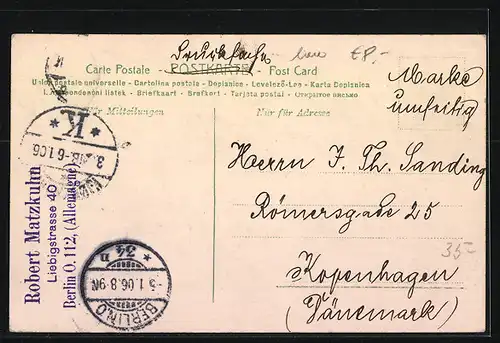 Drucksache
EP.-
Carte Postale - POSTKARTE - Post Card
Union postale universelle - Cartolina postale - Dopisnice - Levelező-Lap - Karta Dopisnica
Korespondenční lístek - Briefkaart - Brefkort - Tarjeta postal - Открытое письмо
Für Mitteilungen
Nur für Adresse
Marke
umseitig
Herrn J. Th. Sanding
Römersgade 25
Kopenhagen
(Dänemark)
35-
Robert Matzkuhn
Liebigstrasse 40
Berlin O. 112, (Allemagne)
* K *
6.1.06
BERLIN.O
-5.1.06.8-9N
* 34 n